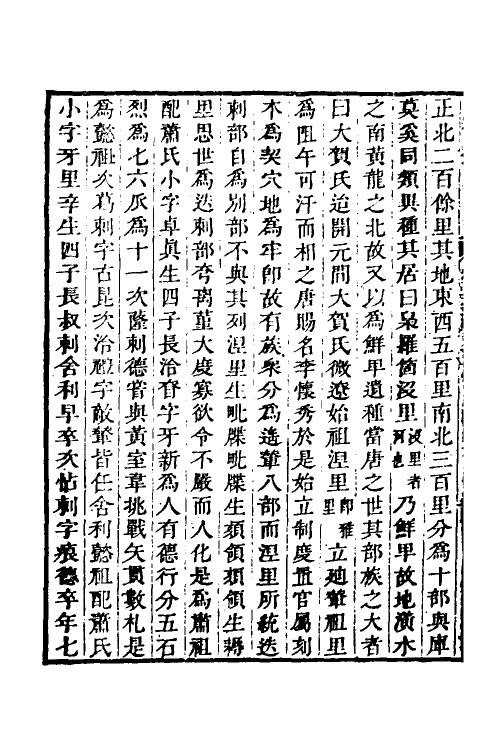 正北二百餘里其地東西五百里南北三百里分為十部與庫
莫奚同類異種其居曰梟羅箇沒里沒里者河也乃鮮卑故地潢水
之南黃龍之北故又以為鮮卑遺種當唐之世其部族之大者
曰大賀氏迨開元間大賀氏微遼始祖涅里即雅里立迪輦祖里
為阻午可汗而相之唐賜名李懷秀於是始立制度置官屬刻
木為契穴地為牢即故有族眾分為遙輦八部而涅里所統迭
剌部自為別部不與其列涅里生毗牒毗牒生頦領頦領生耨
里思世為迭剌部夷离堇大度寡欲令不嚴而人化是為肅祖
配蕭氏小字卓眞生四子長洽昚字牙新為人有德行分五石
烈為七六爪為十一次薩剌德嘗與黃室韋挑戰矢貫數札是
為懿祖次葛剌字古昆次洽禮字敵輦皆任舍利懿祖配蕭氏
小字牙里辛生四子長叔剌舍利早卒次帖剌字痕德卒年七